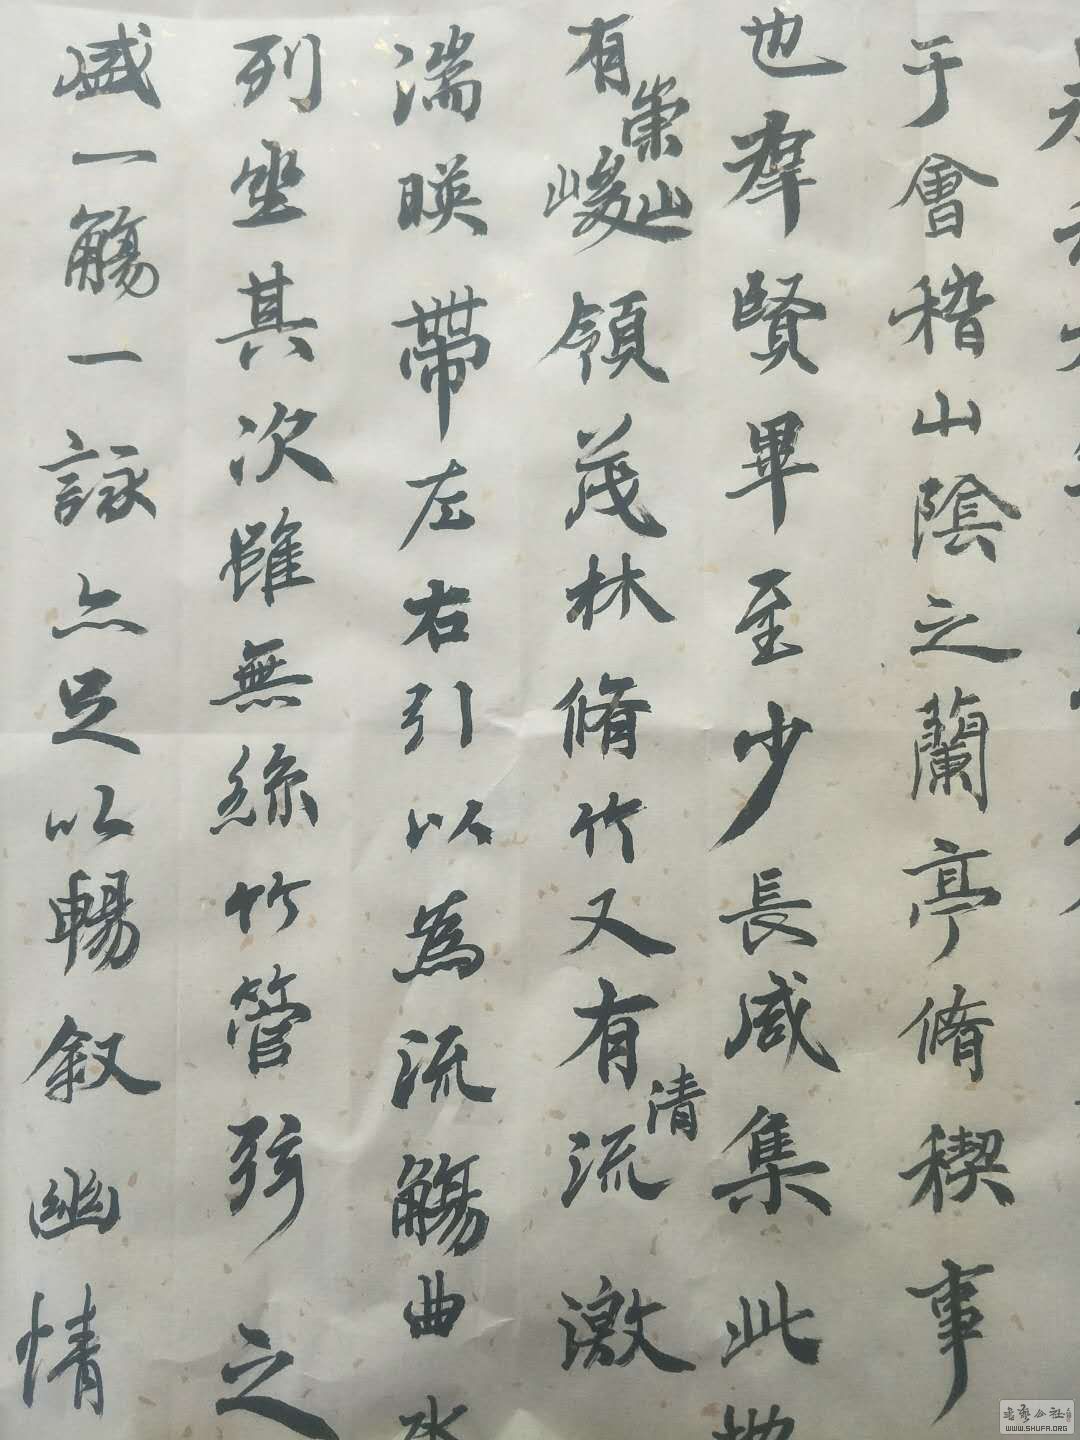 永和九
于會稽山陰之蘭亭脩稧事
也羣賢畢至少長咸集此地
有崇山峻領茂林脩竹又有清流激
湍暎帶左右引以為流觴曲水
列坐其次雖無絲竹管弦之
盛一觴一詠亦足以暢叙幽情
書藝公社
WWW.SHUFA.ORG